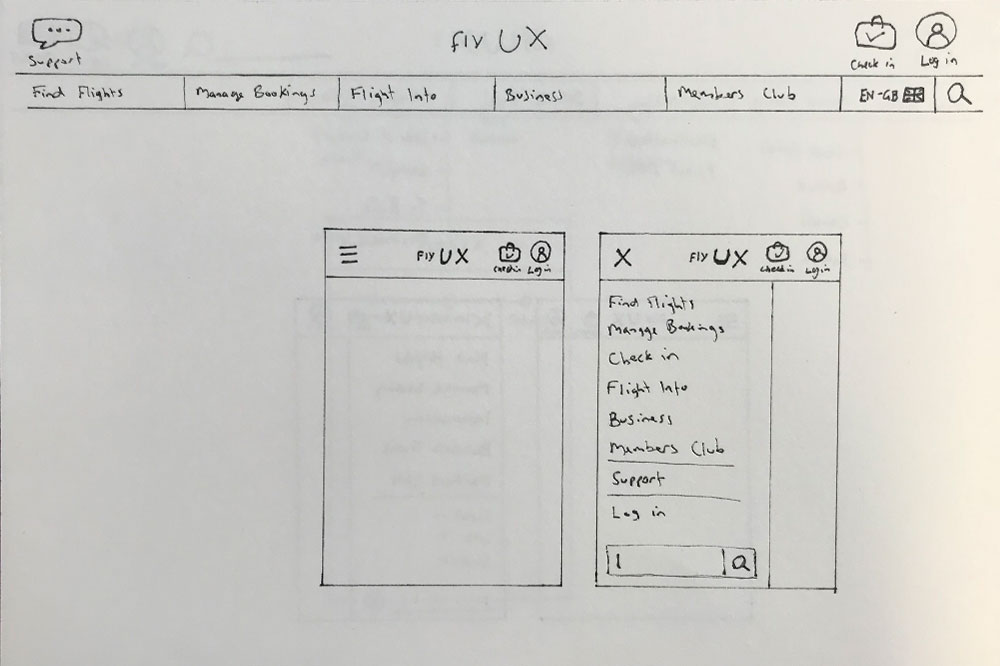 fly UX
Support
Check in
Log in
Find Flights
Manage Bookings
Flight Info
Business
Members Club
EN-GB
Fly UX
Check in
Log in
X
Fly UX
Check in
Log in
Find Flights
Manage Bookings
Check in
Flight Info
Business
Members Club
Support
Log in